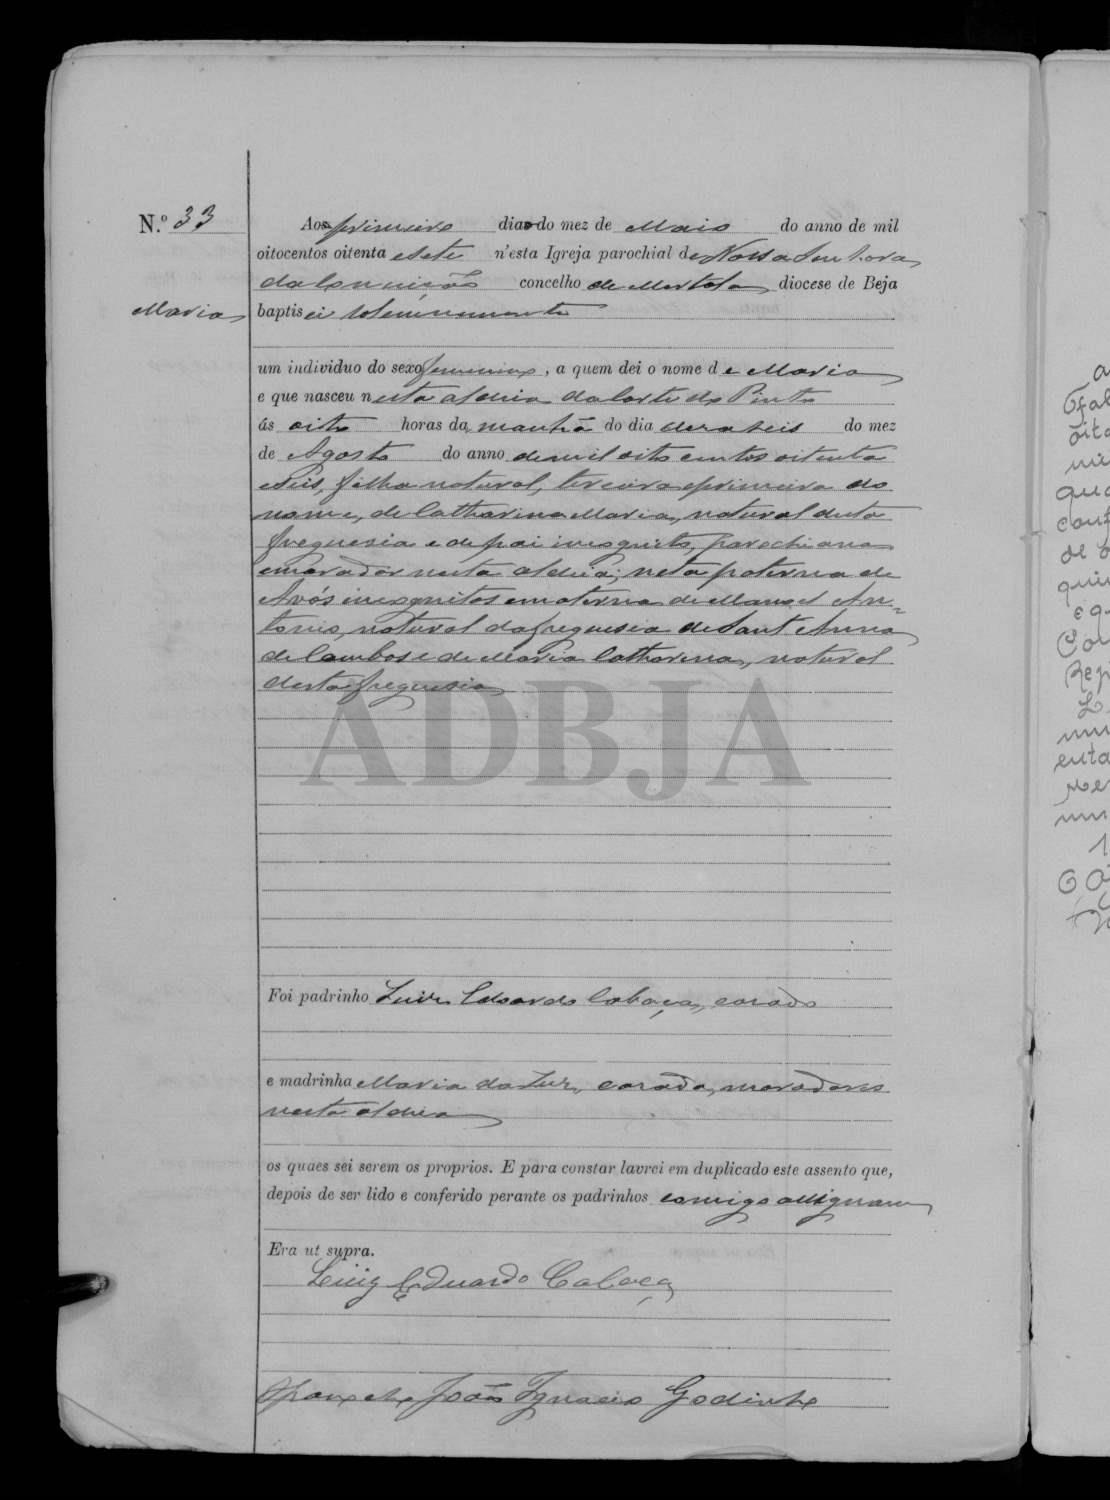 N.º 33
Aos primeiro dias do mez de Maio do anno de mil
oitocentos oitenta e sete n'esta Igreja parochial de Nossa Senhora
da Conceição concelho de Mertola, diocese de Beja
Maria
baptisei solemnemente
um individuo do sexo feminino, a quem dei o nome de Maria
e que nasceu nesta aldeia da Corte do Pinto
ás oito horas da manhã do dia deraseis do mez
de Agosto do anno de mil oito centos oitenta
e seis, filha natural, terceira e primeira do
nome, de Catharina Maria, natural desta
freguesia e de pai incognito, parochiana
e morador nesta aldeia; neta paterna de
Avós incognitos e materna de Manoel An-
tonio, natural da freguesia de Sant'Anna
de Cambas e de Maria Catharina, natural
desta freguesia
ADBJA
Foi padrinho Luiz Eduardo Cabaça, casado
e madrinha Maria da Luz, casada, moradores
nesta aldeia
os quaes sei serem os proprios. E para constar lavrei em duplicado este assento que,
depois de ser lido e conferido perante os padrinhos comigo assignam
Era ut supra.
Luiz Eduardo Cabaça
João Ignacio Godinho